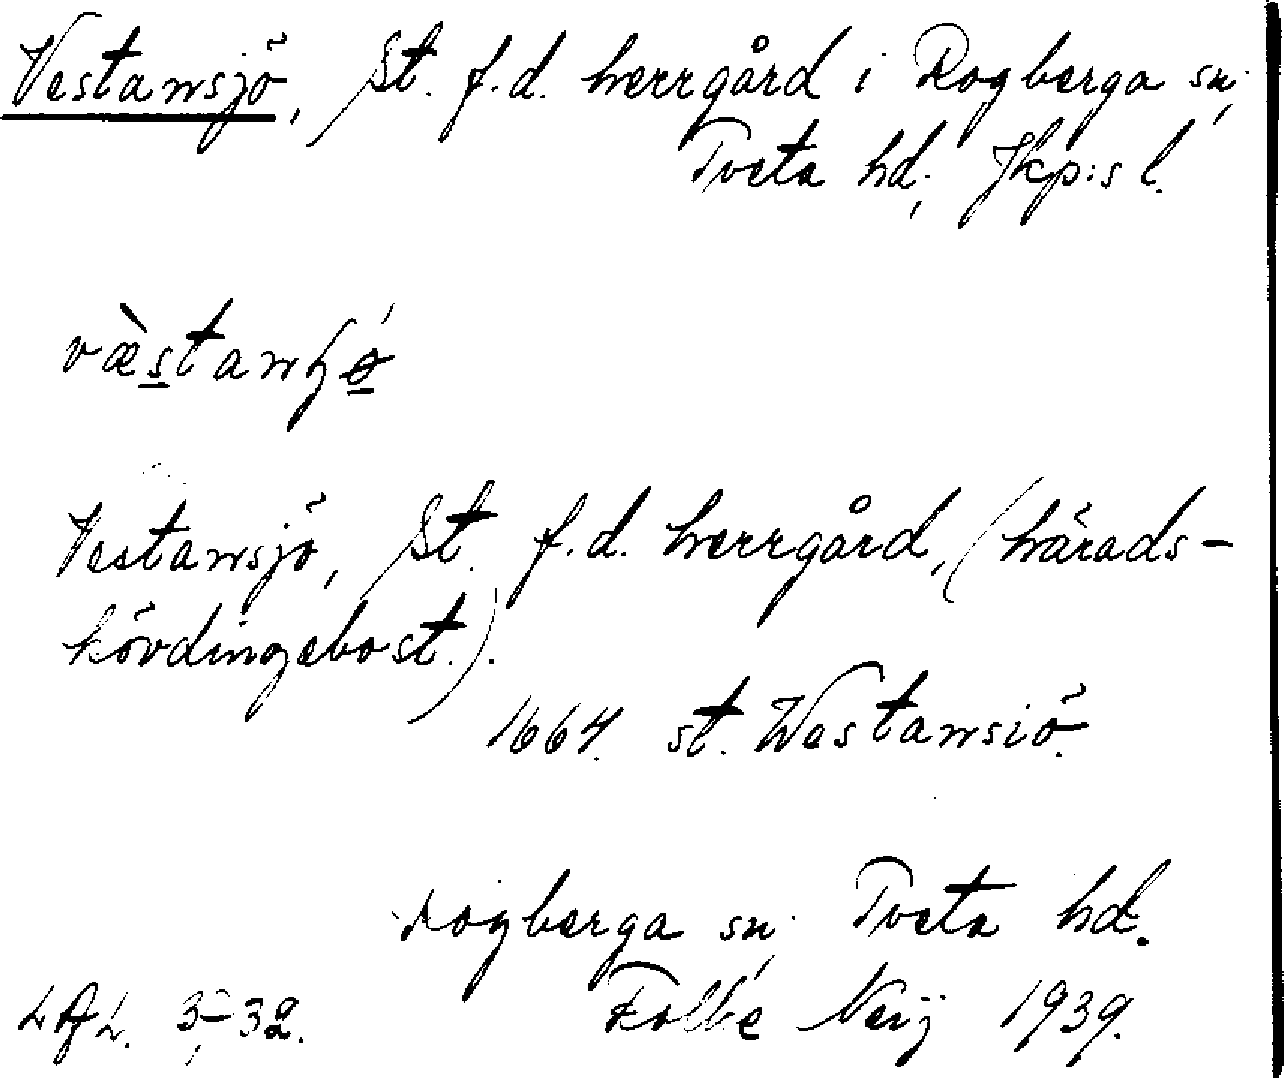 Vestansjö, St. f.d. herrgård i Rogberga sn,
Tveta hd, Jkp:s l.
Vestansjö, St. f.d. herrgård, (härads-
hövdingebost.).
1664. st. Westansiö.
Rogberga sn, Tveta hd.
3-32. Folke 1939.